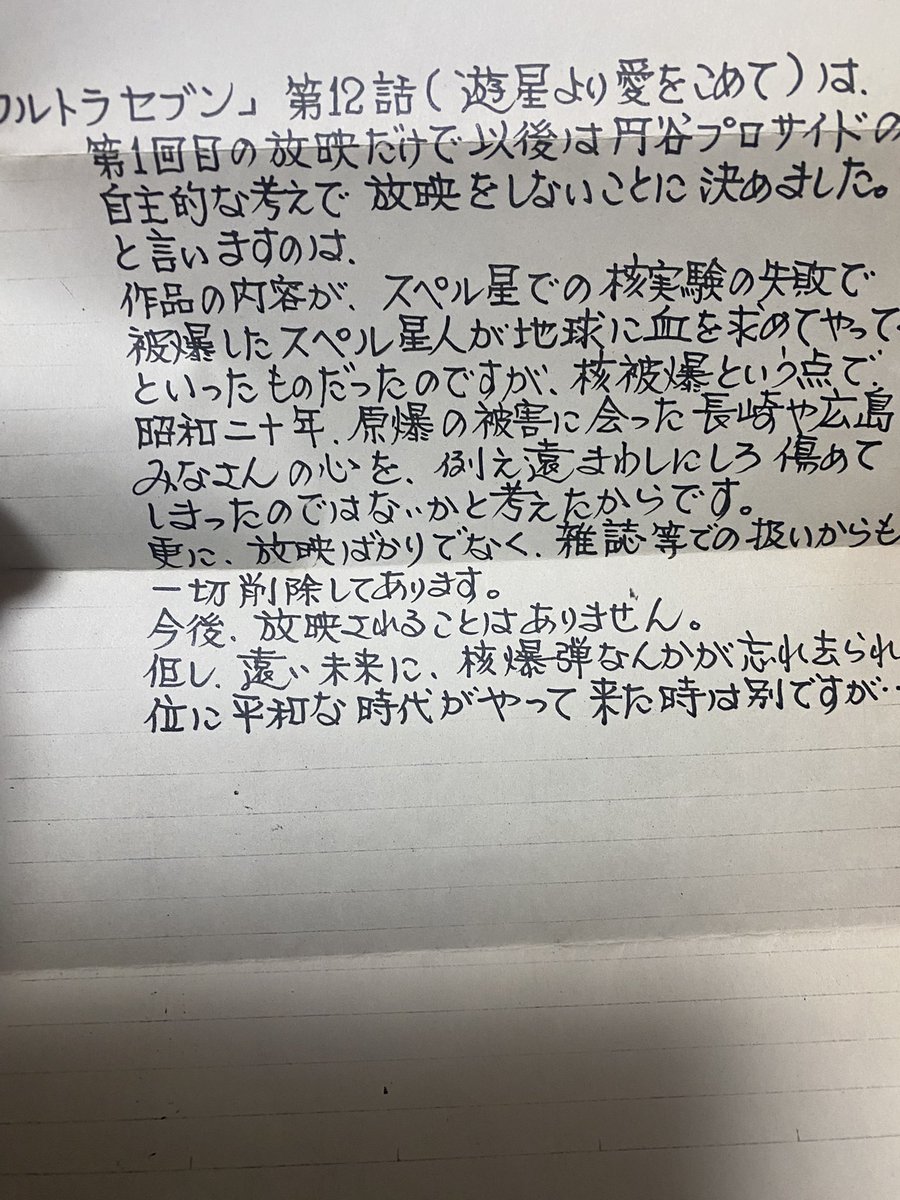 ウルトラセブン」第12話(遊星より愛をこめて)は、
第1回目の放映だけで以後は円谷プロサイドの
自主的な考えで放映をしないことに決めました。
と言いますのは、
作品の内容が、スペル星での核実験の失敗で
被爆したスペル星人が地球に血を求めてやって
といったものだったのですが、核被爆という点で、
昭和二十年、原爆の被害に会った長崎や広島
みなさんの心を、例え遠まわしにしろ傷めて
しまったのではないかと考えたからです。
更に、放映ばかりでなく、雑誌等での扱いからも
一切削除してあります。
今後、放映されることはありません。
但し、遠い未来に、核爆弾なんかが忘れ去られ
位に平和な時代がやって来た時は別ですが…